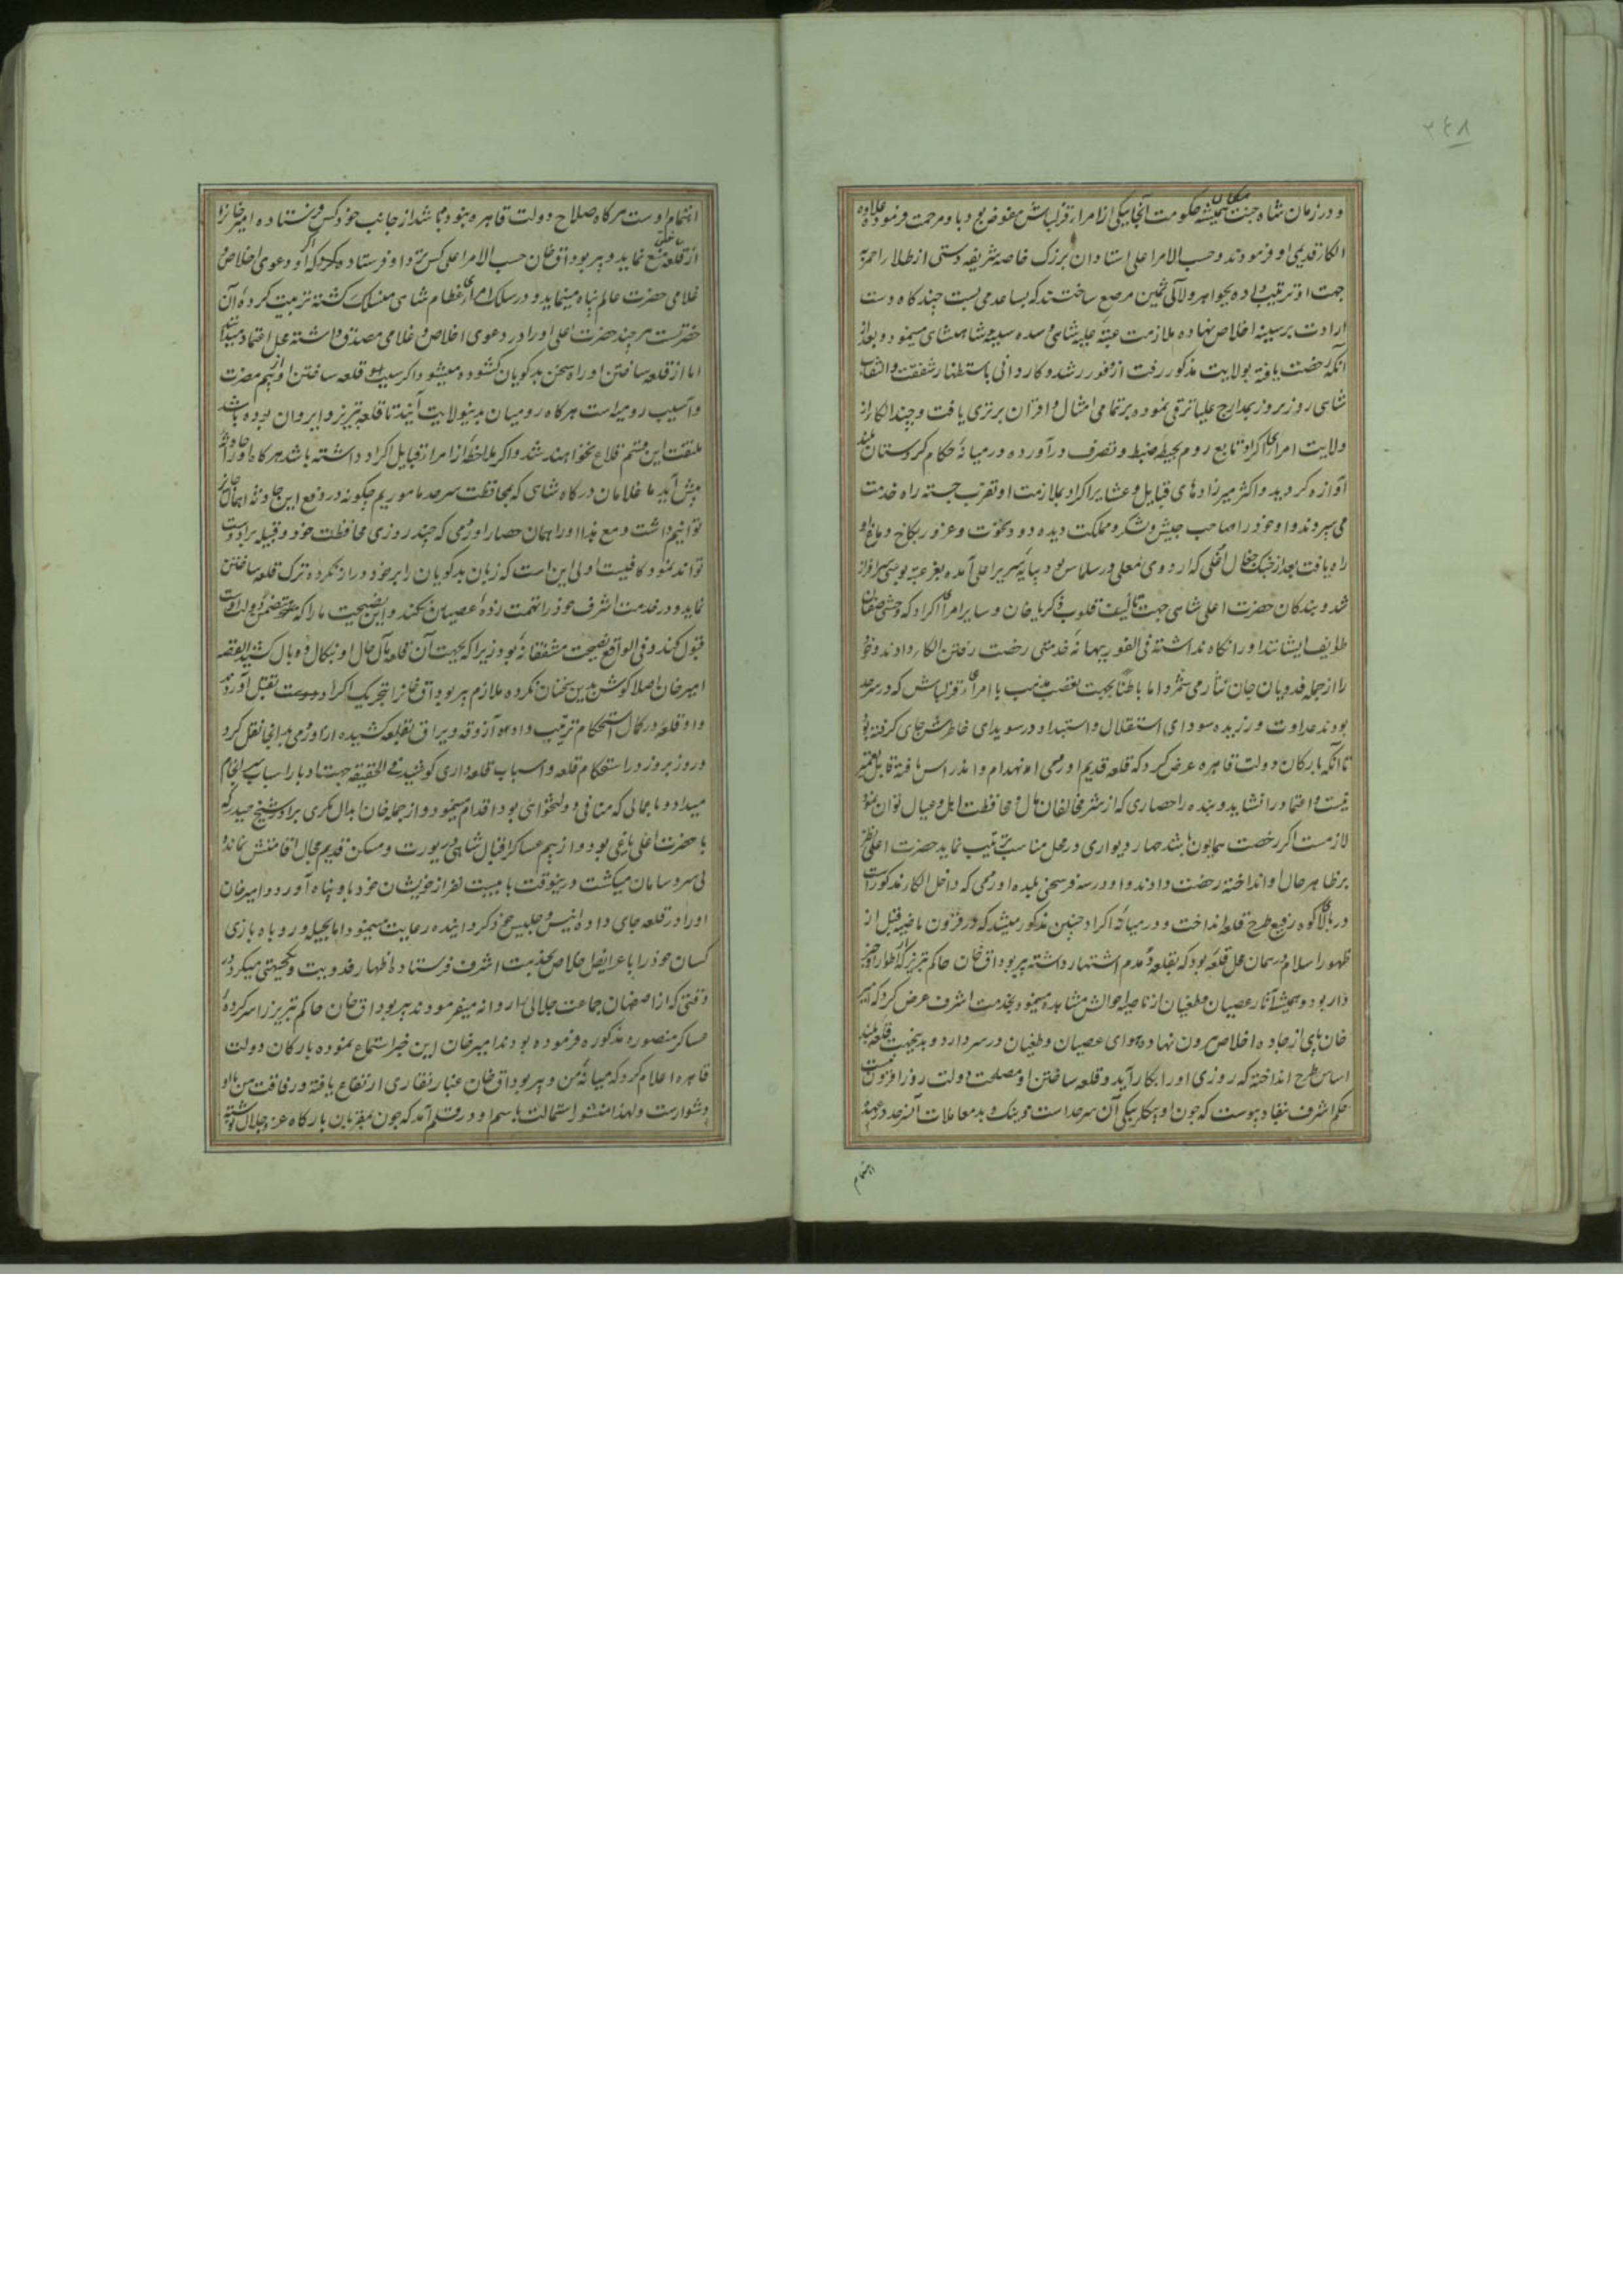 ۲۴۸
و در زمان شاه جنت مکان همیشه حکومت آنجا بیکی از امراء قزلباش مفوض بود باو مرحمت فرموده علاوه
الکاء قدیمی او فرمودند و حسب الامر اعلی استادان زرگر خاصه شریفه دستی از طلاء احمر
جهت او ترتیب داده بجواهر و لآلی ثمین مرصع ساختند که بساعد می بست چند گاه دست
ارادت بر سینه اخلاص نهاده ملازمت عتبه علیه شاهی و سده سنیه شاهنشاهی مینمود و بعد از
آنکه رخصت یافته بولایت مذکور رفت از وفور رشد و کاردانی باستظهار شفقت و التفات
شاهی روز بروز بمدارج علیا ترقی نموده بر تمامی امثال و اقران برتری یافت و چند الکا از
ولایت امراء اکراد تابع روم بحیطه ضبط و تصرف درآورده در میانه حکام کردستان بلند
آوازه گردید و اکثر میرزادهای قبایل و عشایر اکراد بملازمت او تقرب جسته راه خدمت
می سپردند و او خود را صاحب جیش و لشکر و مملکت دیده دود نخوت و غرور بکاخ دماغ او
راه یافت بعد از جنک جغال اغلی که اردوی معلی در سلماس بود بپایه سریر اعلی آمده بعز عتبه بوسی سرافراز
شد و بندکان حضرت اعلی شاهی جهت تألیف قلوب زکریا خان و سایر امراء اکراد که وحشی صفتان
طوایف ایشانند او را نکاه نداشته فی الفور ببهانه خدمتی رخصت رفتن الکاء دادند و خود
را از جمله فدویان جان نثار می شمرد اما باطناً بجهت تعصب مذهب با امراء قزلباش که در سرحد
بودند عداوت ورزیده سودای استقلال و استبداد در سویدای خاطرش جای گرفته بود
تا آنکه بارکان دولت قاهره عرض کرد که قلعه قدیم اورمی انهدام و اندراس یافته قابل تعمیر
نیست و اعتماد را نشاید و بنده را حصاری که از شر مخالفان مال و محافظت اهل و عیال توان نمود
لازمست اگر رخصت همایون باشد چهار دیواری در محل مناسب ترتیب نماید حضرت اعلی نظر
بر ظاهر حال او انداخته رخصت دادند و او در سه فرسخی بلده اورمی که داخل الکاء مذکور است
در بالای کوه رفیع طرح قلعه انداخت و در میانه اکراد چنین مذکور میشد که در قرون ماضیه قبل از
ظهور اسلام در همان محل قلعه بود که بقلعه دمدم اشتهار داشته پیر بوداق خان حاکم تبریز که از اطوار او خبر
دار بود و همیشه آثار عصیان و طغیان از ناصیه احوالش مشاهده مینمود بخدمت اشرف عرض کرد که امیر
خان پای از جاده اخلاص بیرون نهاده هوای عصیان و طغیان در سر دارد و بدینجهت قلعه بلند
اساس طرح انداخته که روزی او را بکار آید و قلعه ساختن او مصلحت دولت روز افزون نیست
حکم اشرف بنفاد پیوست که چون او بیکلربیکی آن سرحد است و نیک و بد معاملات آنسرحد در عهده
اهتمام
اهتمام اوست هر گاه صلاح دولت قاهره نبوده باشد از جانب خود کس فرستاده امیر خانرا
از ساختن قلعه منع نماید و پیر بوداق خان حسب الامر اعلی کس نزد او فرستاده که اگر او دعوی اخلاص و
غلامی حضرت عالم پناه مینماید و در سلک امرای عظام شاهی منسلک گشته تربیت کرده آن
حضرتست هر چند حضرت اعلی او را در دعوی اخلاص و غلامی مصدق داشته محل اعتماد میدانند
اما از قلعه ساختن او راه سخن بدگویان گشوده میشود و اگر سبب قلعه ساختن او از بیم مضرت
و آسیب رومیه است هرگاه رومیان بدینولایت آیند تا قلعه تبریز و ایروان بوده باشد
ملتفت این قسم قلاع نخواهند شد و اگر ملاحظه از امراء قبایل اکراد داشته باشد هرگاه او را حادثه
پیش آید ما غلامان درگاه شاهی که بمحافظت سرحد ماموریم چگونه در دفع این حادثه اهمال جایز
توانیم داشت و مع هذا او را همان حصار اورمی که چند روزی محافظت خود و قبیله براو دست
تواند نمود کافیست اولی این است که زبان بدگویان را بر خود دراز نکرده ترک قلعه ساختن
نماید و در خدمت اشرف خود را تهمت زده عصیان نکند و این نصیحت ما را که متضمن دولت اوست
قبول کند و فی الواقع نصیحت مشفقانه بود زیرا که بجهت آن قلعه مآل حال او بنکال و وبال کشید القصه
امیر خان اصلا گوش بدین سخنان نکرده ملازم پیر بوداق خانرا بتحریک اکراد بقتل آورد
و او قلعه در کمال استحکام ترتیب داده آزوقه و یراق بقلعه کشیده از اورمی بدانجا نقل کرد
و روز بروز در استحکام قلعه و اسباب قلعه داری کوشید فی الحقیقه جهت ادبار اسباب سرانجام
میداد و باعمالی که منافی دولتخواهی بود اقدام مینمود و از جمله خان ابدال مکری برادر شیخ حیدر که
با حضرت اعلی یاغی بود و از بیم عساکر اقبال شاهی در یورت و مسکن قدیم مجال اقامتش نمانده
بی سر و سامان میگشت درینوقت با بیست نفر از خویشان خود باو پناه آورد و امیر خان
او را در قلعه جای داده انیس و جلیس خود گردانیده رعایت مینمود اما بحیله و روباه بازی
کسان خود را با عرایض اخلاص بخدمت اشرف فرستاده اظهار فدویت و یکجهتی میکرد در
وقتی که از اصفهان جماعت جلالی را روانه میفرمودند پیر بوداق خان حاکم تبریز را سر کرده
عساکر منصوره مذکوره فرموده بودند امیر خان این خبر استماع نموده بارکان دولت
قاهره اعلام کرد که میانه من و پیر بوداق خان غبار نقاری ارتفاع یافته و رفاقت من با او
دشوار است و لهذا منشور استمالت باسم او در قلم آمد که چون بمقربان بارگاه عز و جلال نوشته